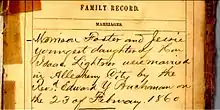 FAMILY RECORD.
MARRIAGES.
Morrison Foster and Jessie
youngest daughter of Hon
Isaac Lightner were married
in Allegheny City by the
Rev. Edward Y Buchanan on
the 23 of February 1860